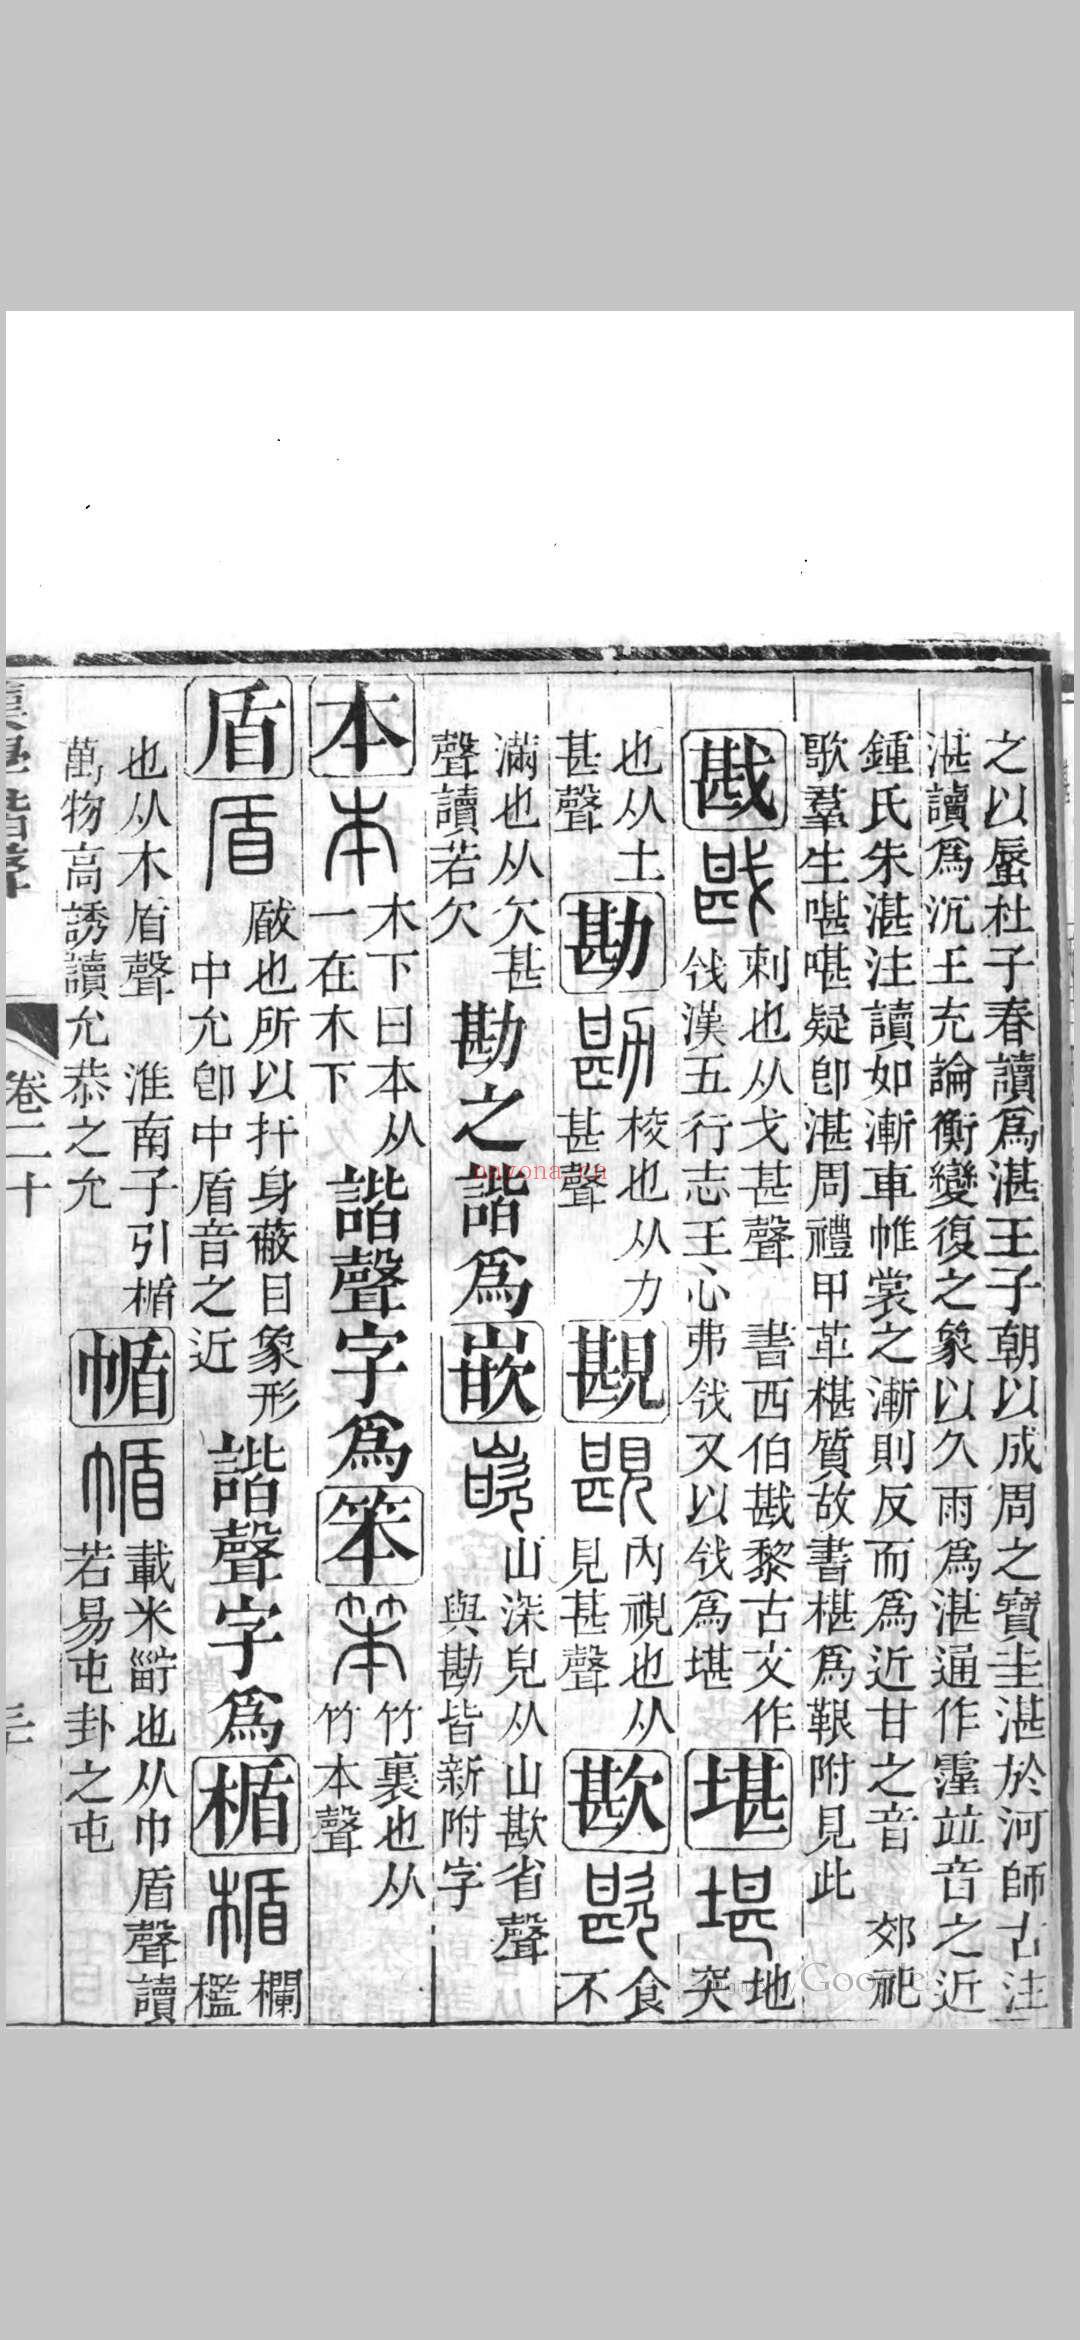 之以蜃杜子春讀爲湛王子朝以成周之寶圭湛於河師古注
湛讀爲沉王充論衡變復之象以久雨爲湛通作霪竝音之近
鍾氏朱湛注讀如漸車帷裳之漸則反而爲近甘之音　郊祀
歌羣生啿啿疑卽湛周禮甲革椹質故書椹爲鞎附見此
戡
刺也从戈甚聲　書西伯戡黎古文作
㦰漢五行志王心弗㦰又以㦰爲堪
堪
地
突
也从土
甚聲
勘
校也从力
甚聲
䫴
內視也从
見甚聲
歁
食
不
滿也从欠甚
聲讀若欠
勘之諧爲
嵌
山深皃从山歁省聲
與勘皆新附字
本
木下曰本从
一在木下
諧聲字爲
笨
竹裏也从
竹本聲
盾
瞂也所以扞身蔽目象形
中允卽中盾音之近
諧聲字爲
楯
欄
檻
也从木盾聲　淮南子引楯
萬物高誘讀允恭之允
㡒
載米𪓿也从巾盾聲讀
若易屯卦之屯
漢學諧聲
卷二十
三
onyona.cn
Google